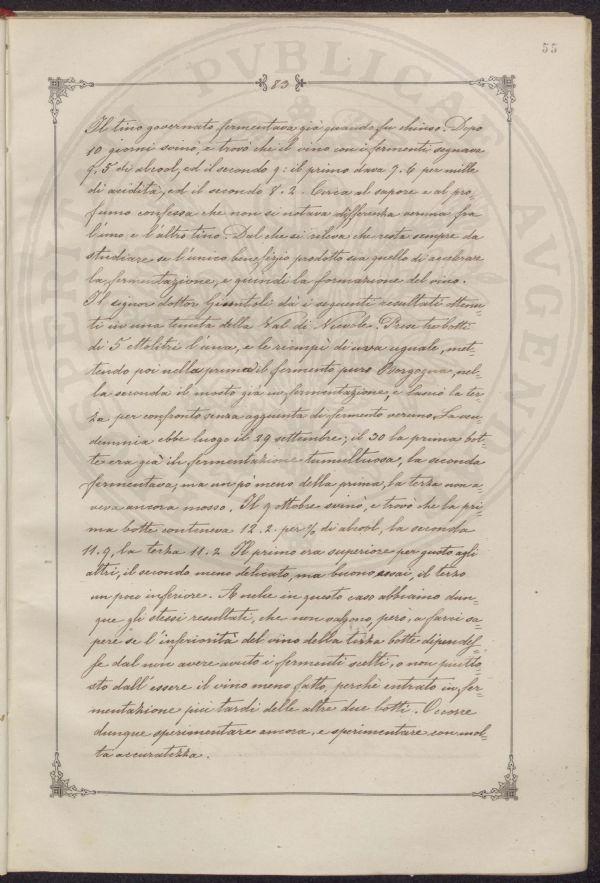 55
83
Il tino governato fermentava già quando fu chiuso. Dopo
10 giorni svinò, e trovò che il vino con i fermenti segnava
9.5 di alcool, ed il secondo 9: il primo dava 7.4 per mille
di acidità, ed il secondo 8.2. Circa al sapore e al pro=
fumo confessa che non si notava differenza veruna fra
l'uno e l'altro tino. Dal che si rileva che resta sempre da
studiare se l'unico benefizio prodotto sia quello di accelerare
la fermentazione, e quindi la formazione del vino.
Il signor dottor Giuntoli dà i seguenti resultati ottenu=
ti in una tenuta della Val di Nievole. Prese tre botti
di 5 Ettolitri l'una, e le riempì di uva uguale, met=
tendo poi nella prima il fermento puro Borgogna, nel=
la seconda il mosto già in fermentazione, e lasciò la ter
za per confronto senza aggiunta di fermento veruno. La ven=
demmia ebbe luogo il 29 settembre; il 30 la prima bot=
te era già in fermentazione tumultuosa, la seconda
fermentava, ma un pò meno della prima, la terza non a=
veva ancora mosso. Il 9 ottobre svinò, e trovò che la pri=
ma botte conteneva 12.2. per % di alcool, la seconda
11.9, la terza 11.2. Il primo era superiore per gusto agli
altri, il secondo meno delicato, ma buono assai, il terzo
un poco inferiore. Anche in questo caso abbiamo dun=
que gli stessi resultati, che non valgono, però, a farci sa=
pere se l'inferiorità del vino della terza botte dipendes=
se dal non avere avuto i fermenti scelti, o non piutto=
sto dall'essere il vino meno fatto, perchè entrato in fer=
mentazione più tardi delle altre due botti. Occorre
dunque sperimentare ancora, e sperimentare con mol=
ta accuratezza.